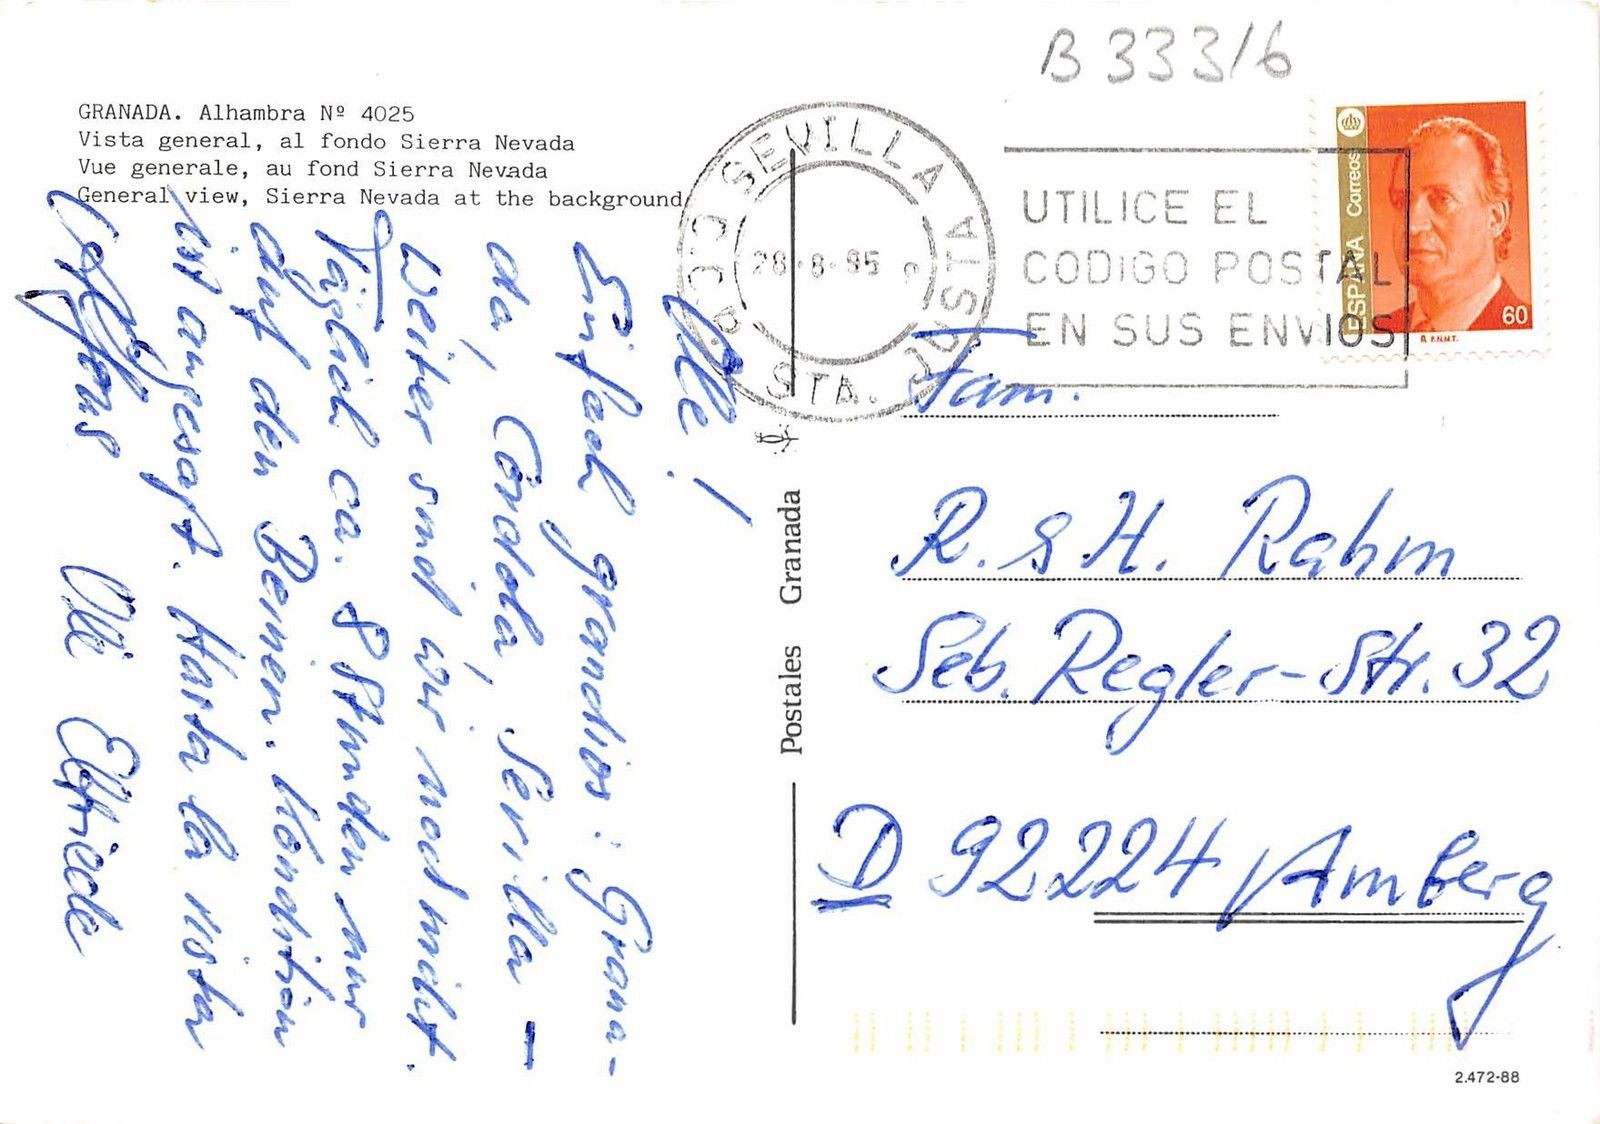 B 333/6
GRANADA. Alhambra Nº 4025
Vista general, al fondo Sierra Nevada
Vue generale, au fond Sierra Nevada
General view, Sierra Nevada at the background
SEVILLA
STA. JUSTA
28-8-95
UTILICE EL
CODIGO POSTAL
EN SUS ENVIOS
ESPAÑA Correos
60
R.F.N.M.T.
Olé!
Einfach grandios: Grana-
da, Cordoba, Sevilla –
Weiter sind wir noch nicht.
Täglich ca. 8 Stunden nur
auf den Beinen. Kondition
ist angesagt. Hasta la vista
Alfons Olli Elfriede
Postales Granada
Fam.
R. & H. Rahm
Seb. Regler-Str. 32
D 92224 Amberg
2.472-88